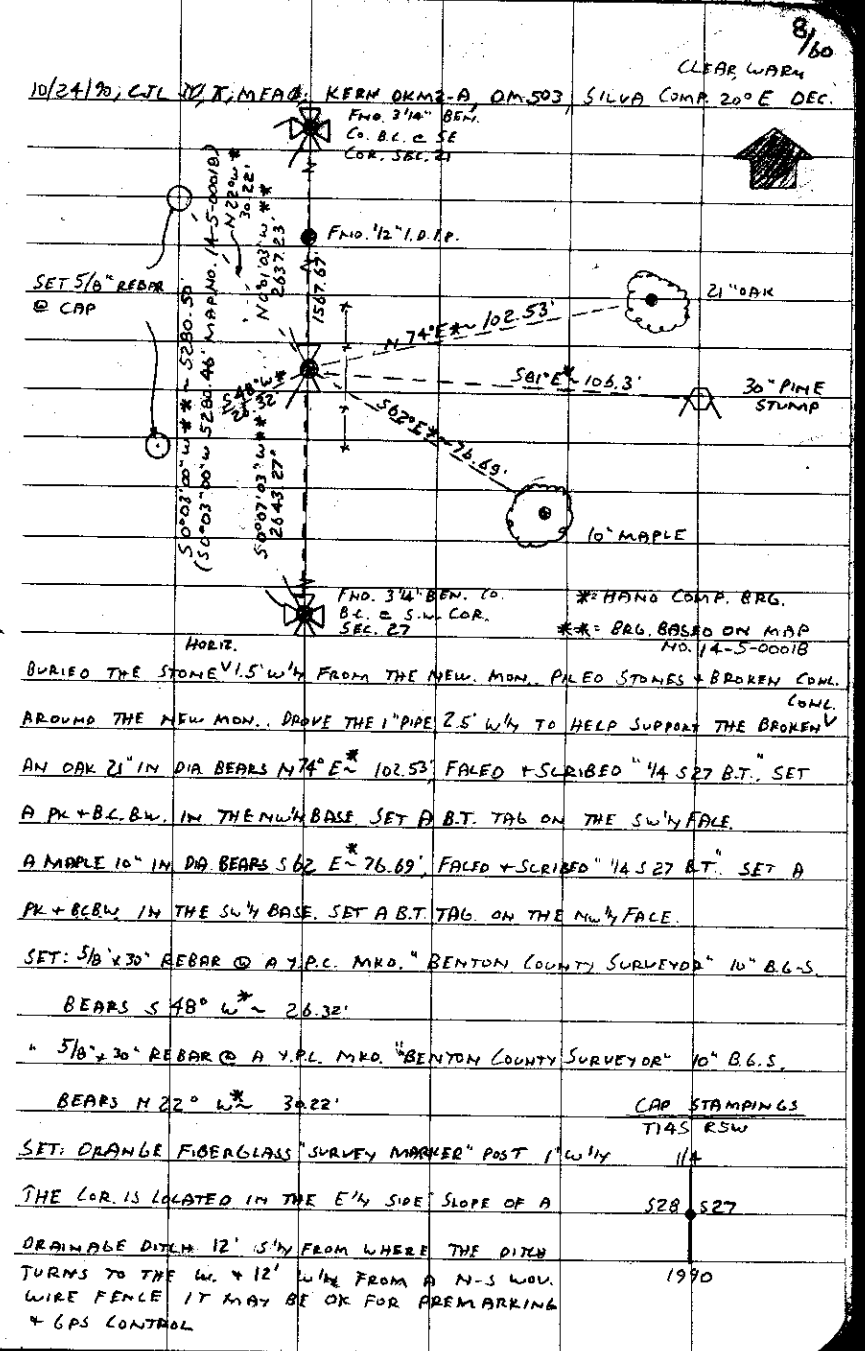 8/60
CLEAR, WARM
10/24/90, CJL, MEAD, KERN DKM2-A, D.M. 503, SILVA COMP. 20° E DEC.
FND. 3 1/4" BEN.
CO. B.C. @ SE
COR. SEC. 21
FND. 1/2" I.D.I.P.
SET 5/8" REBAR
@ CAP
S 0°03'00" W ** ~ 5280.50'
(S 0°03'00" W 5280.46' MAP NO. 14-5-0001B)
N 22° W *
30.22'
N 0°01'03" W **
2637.23'
1567.67'
S 48° W *
26.32'
S 0°07'03" W **
2643.27'
N 74° E * ~ 102.53'
21" OAK
S 81° E * ~ 106.3'
30" PINE
STUMP
S 62° E * ~ 76.69'
10" MAPLE
FND. 3 1/4" BEN. CO.
B.C. @ S.W. COR.
SEC. 27
* = HAND COMP. BRG.
** = BRG. BASED ON MAP
NO. 14-5-0001B
HORIZ.
BURIED THE STONE V 1.5' W'LY FROM THE NEW. MON.. PILED STONES + BROKEN CONC.
CONC.
AROUND THE NEW MON.. DROVE THE 1" PIPE 2.5' W'LY TO HELP SUPPORT THE BROKEN V
AN OAK 21" IN DIA BEARS N 74° E * ~ 102.53', FACED + SCRIBED "1/4 S27 B.T.", SET
A PK + B.C.B.W. IN THE NW'LY BASE. SET A B.T. TAG ON THE SW'LY FACE.
A MAPLE 10" IN DIA BEARS S 62 E * ~ 76.69', FACED + SCRIBED "1/4 S 27 B.T." SET A
PK + BCBW IN THE SW'LY BASE. SET A B.T. TAG ON THE NW'LY FACE.
SET: 5/8" x 30" REBAR @ A Y.P.C. MKD. "BENTON COUNTY SURVEYOR" 10" B.G.S.
BEARS S 48° W * ~ 26.32'
" 5/8" x 30" REBAR @ A Y.P.C. MKD. "BENTON COUNTY SURVEYOR" 10" B.G.S.
BEARS N 22° W * ~ 30.22'
CAP STAMPINGS
T14S R5W
SET: ORANGE FIBERGLASS "SURVEY MARKER" POST 1' W'LY
1/4
THE COR. IS LOCATED IN THE E'LY SIDE SLOPE OF A
S28 S27
DRAINAGE DITCH 12' S'LY FROM WHERE THE DITCH
TURNS TO THE W. + 12' W'LY FROM A N-S WOV.
1990
WIRE FENCE IT MAY BE OK FOR PREMARKING
+ GPS CONTROL